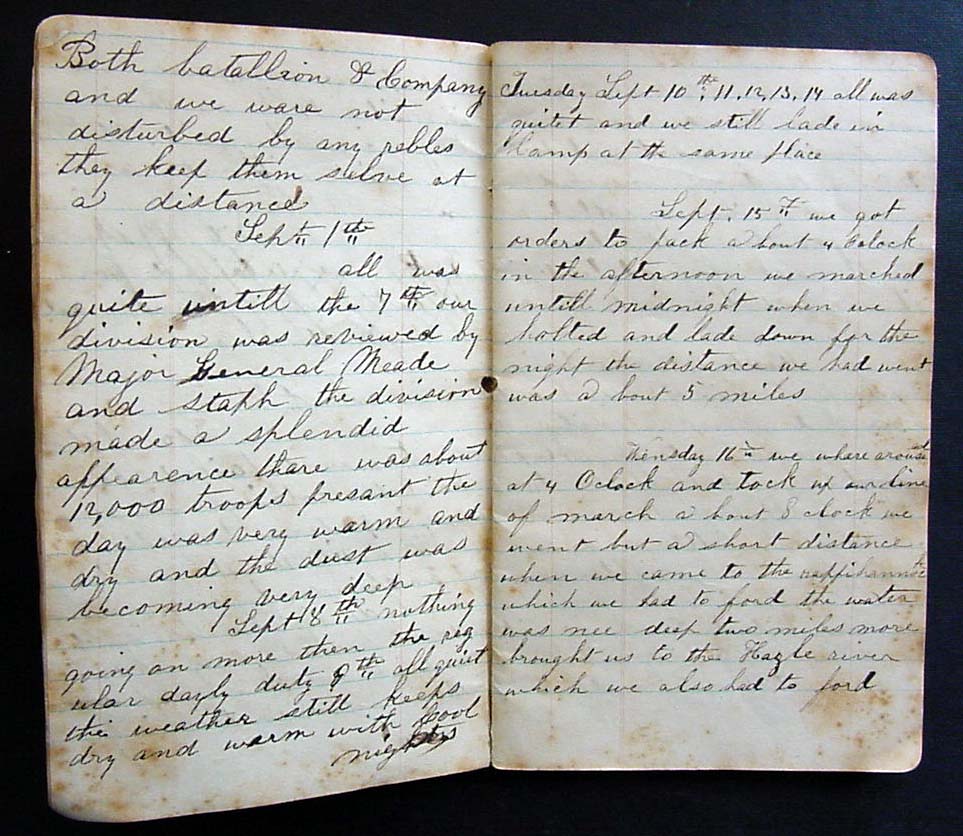 Both batallion & Company
and we ware not
disturbed by any rebles
they keep them selve at
a distance
Sept 1th
all was
quite untill the 7th our
division was reviewed by
Major General Meade
and staph the division
made a splendid
appearence thare was about
12,000 troops presant the
day was very warm and
dry and the dust was
becoming very deep
Sept 8th nothing
going on more then the reg
ular dayly duty 9th all quiet
the weather still keeps
dry and warm with cool
nights
Tuesday Sept 10th, 11, 12, 13, 14 all was
quiet and we still lade in
kamp at the same place
Sept. 15th we got
orders to pack a bout 4 Oclock
in the afternoon we marched
untill midnight when we
holted and lade down for the
night the distance we had went
was a bout 5 miles
Wensday 16th we where
at 4 Oclock and tock up our line
of march a bout 8 clock we
went but a short distance
when we came to the
which we had to ford the water
was nee deep two miles more
brought us to the Hazle river
which we also had to ford